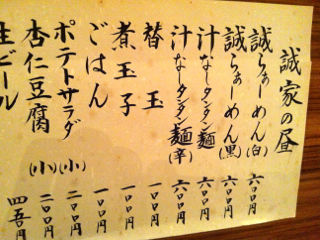 誠家の昼
誠らぁーめん(白) 六〇〇円
誠らぁーめん(黒) 六〇〇円
汁なータンタン麺 六〇〇円
汁なータンタン麺(辛) 六〇〇円
替玉 一〇〇円
煮玉子 一〇〇円
ごはん 一〇〇円
ポテトサラダ(小) 二〇〇円
杏仁豆腐(小) 二〇〇円
生ビール 四五〇円